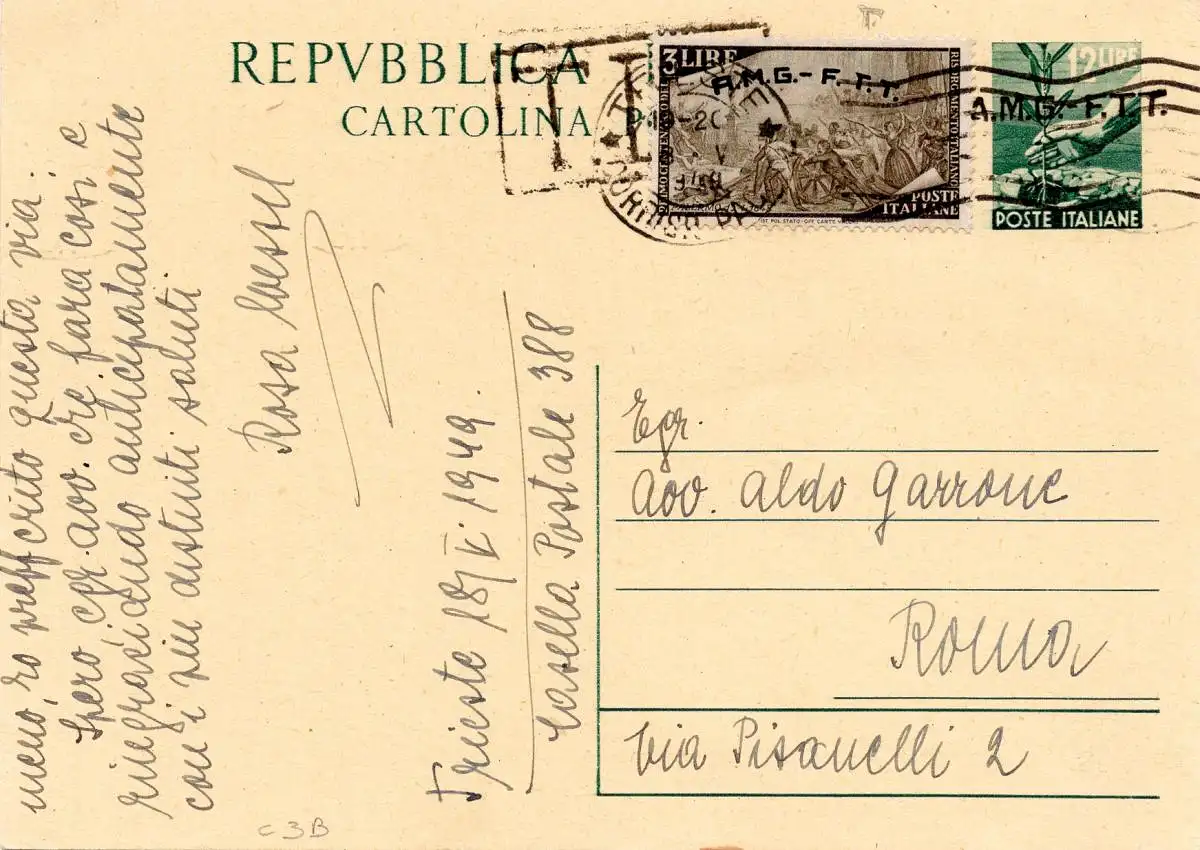 REPVBBLICA
CARTOLINA
T.
3 LIRE
A.M.G.-F.T.T.
RISORGIMENTO ITALIANO
POSTE
ITALIANE
12 LIRE
A.M.G.-F.T.T.
POSTE ITALIANE
T
TRIESTE
meno, ho prefferito questa via.
Spero egr. avv. che fara cosi e
ringraciando anticipatamente
con i piu distinti saluti.
Rosa
Trieste 18/V. 1949.
Casella Postale 388
Egr.
Avv. Aldo Garrone
Roma
Via Pisanelli 2
C 3B